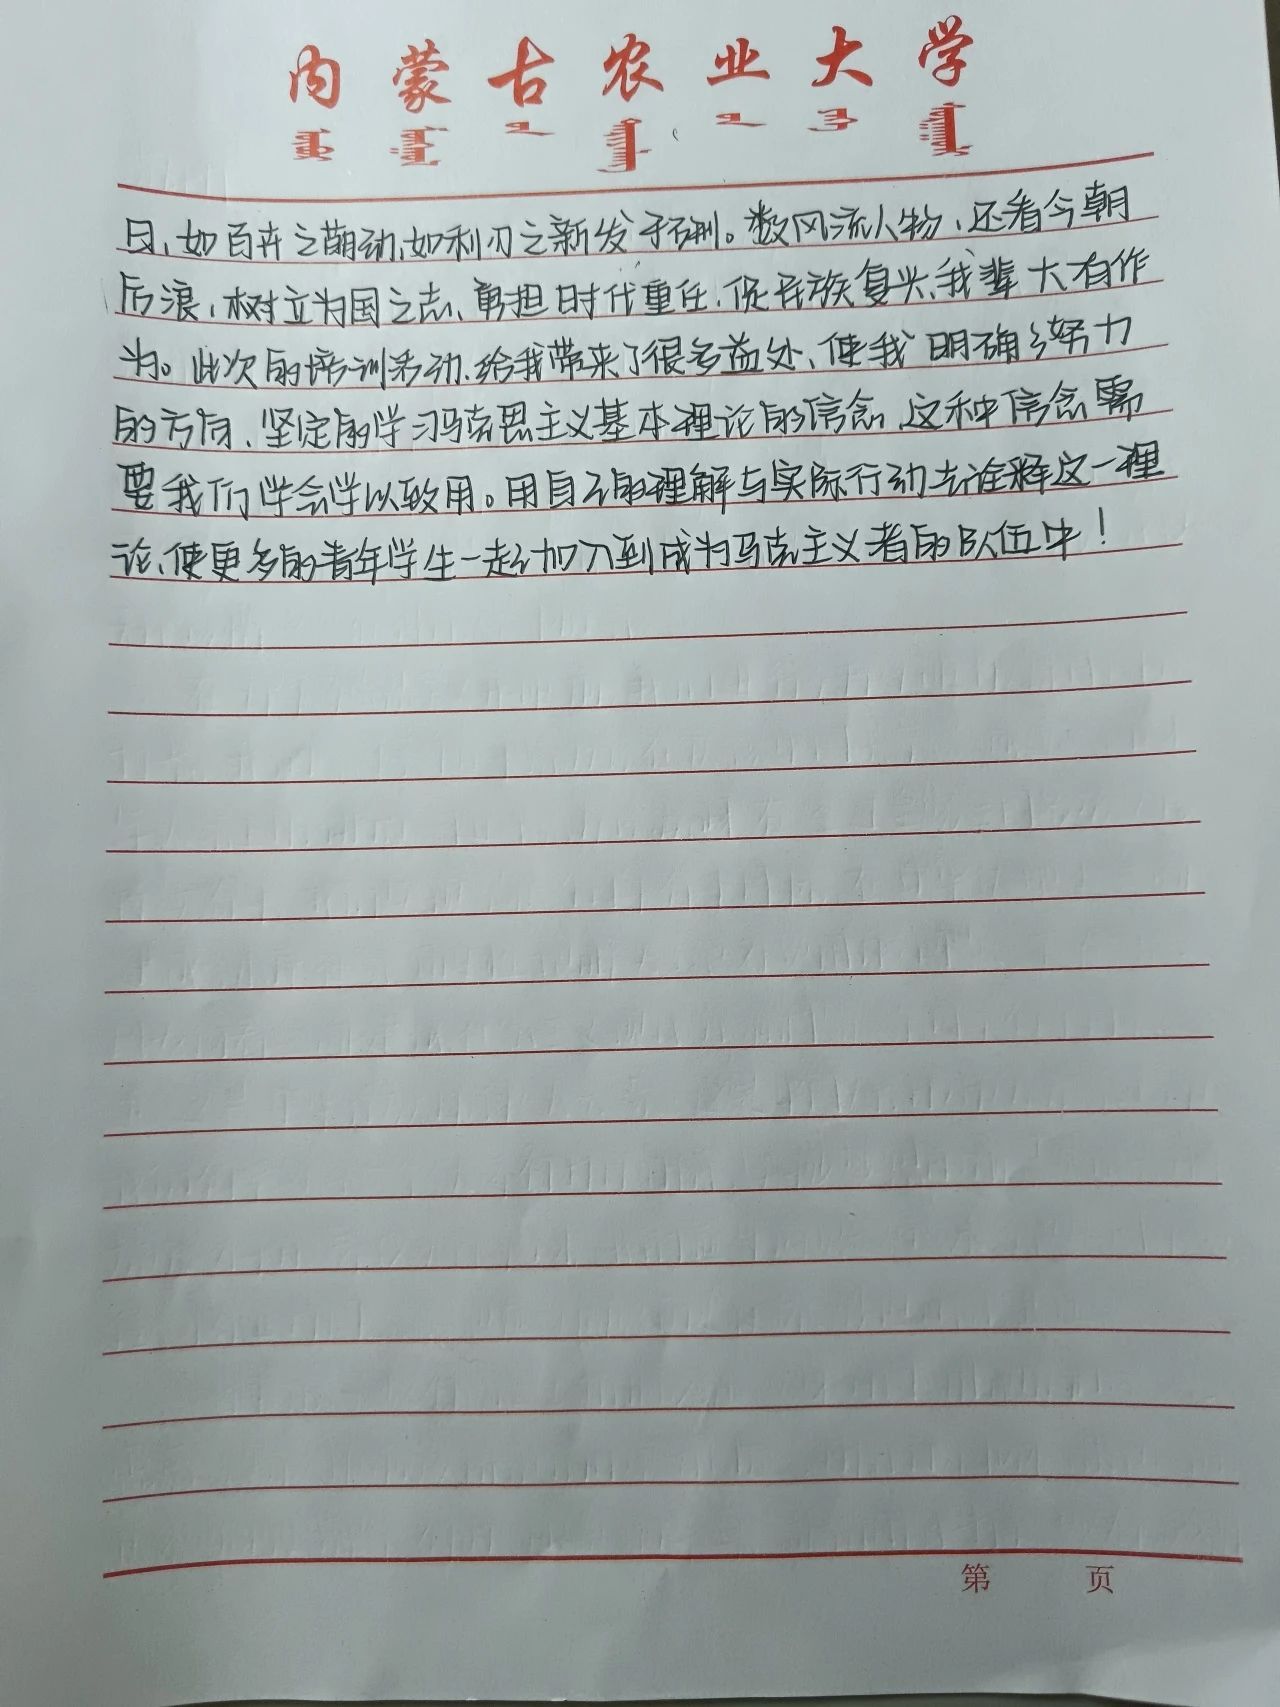 内蒙古农业大学
日，如百卉之萌动，如利刃之新发于硎。数风流人物，还看今朝
后浪，树立为国之志、勇担时代重任，促民族复兴，我辈大有作
为。此次的培训活动，给我带来了很多益处，使我明确了努力
的方向，坚定的学习马克思主义基本理论的信念，这种信念需
要我们学会学以致用。用自己的理解与实际行动去诠释这一理
论，使更多的青年学生一起加入到成为马克思主义者的队伍中！
第 页